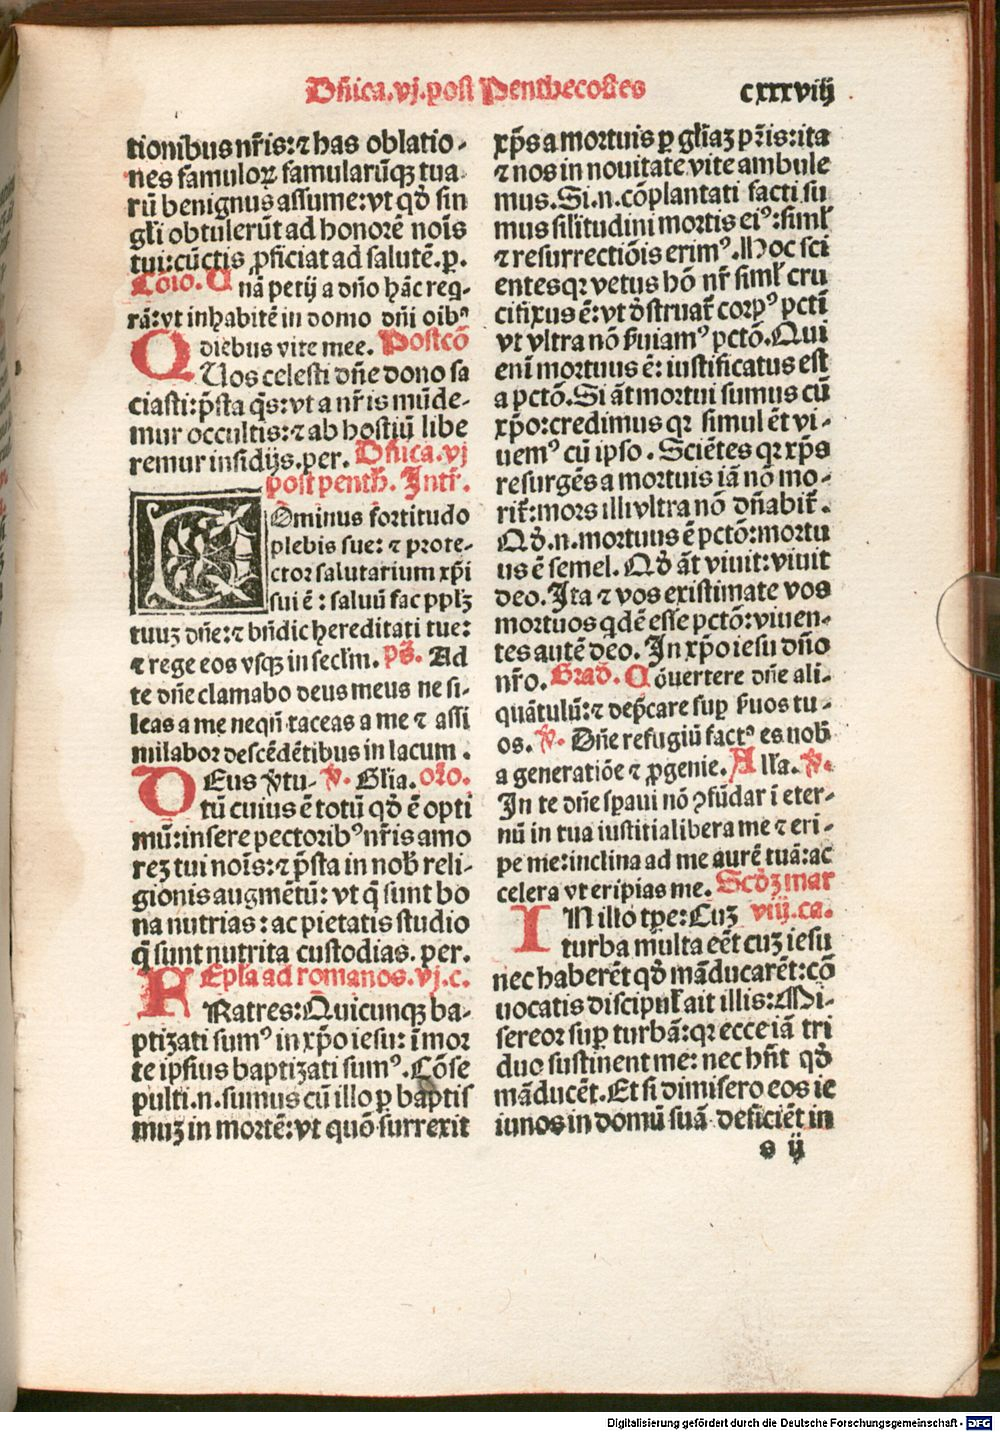 Dñica.vj.post Penthecostes cxxxviij
tionibus nr̃is:⁊ has oblatio-
nes famuloꝝ famularũqꝫ tua
rũ benignus assume:vt qđ sin
gl̃i obtulerũt ad honorẽ noĩs
tui:cũctis ꝓficiat ad salutẽ.p.
Cõio. Unã petij a dño hãc req-
rã:vt inhabitẽ in domo dñi oibꝰ
diebus vite mee. Postcõ
QUos celesti dñe dono sa
ciasti:p̃sta q̃s:vt a nr̃is mũde-
mur occultis:⁊ ab hostiũ libe
remur insidijs.per. Dñica.vj
post penth. Intr̃.
DOminus fortitudo
plebis sue: ⁊ prote-
ctor salutarium xp̃i
sui ẽ: saluũ fac pplꝫ
tuuꝫ dñe:⁊ bñdic hereditati tue:
⁊ rege eos vsqꝫ in secl̃m. ps̃. Ad
te dñe clamabo deus meus ne si-
leas a me neqñ taceas a me ⁊ assi
milabor descẽdẽtibus in lacum.
DEus ṽtu- ℣. Glia. Or̃o.
tũ cuius ẽ totũ qđ ẽ opti
mũ:insere pectoribꝰ nr̃is amo
reꝫ tui noĩs:⁊ p̃sta in nob̃ reli-
gionis augmẽtũ: vt q̃ sunt bo
na nutrias: ac pietatis studio
q̃ sunt nutrita custodias. per.
Ep̃la ad romanos.vj.c.
FRatres:Quicunqꝫ ba-
ptizati sumꝰ in xp̃o iesu: ĩ mor
te ipsius baptizati sumꝰ. Cõse
pulti.n.sumus cũ illo ꝑ baptis
muꝫ in mortẽ:vt quõ surrexit
xp̃s a mortuis ꝑ gl̃iaꝫ pr̃is:ita
⁊ nos in nouitate vite ambule
mus.Si.n.cõplantati facti su
mus sil̃itudini mortis eiꝰ:siml̃
⁊ resurrectiõis erimꝰ.Hoc sci
entes qꝛ vetus hõ nr̃ siml̃ cru
cifixus ẽ:vt đstruat̃ corpꝰ pctĩ
vt vltra nõ s̃uiamꝰ pctõ.Qui
enĩ mortuus ẽ: iustificatus est
a pctõ.Si ãt mortui sumus cũ
xp̃o:credimus qꝛ simul ẽt vi-
uemꝰ cũ ipso. Sciẽtes qꝛ xp̃s
resurgẽs a mortuis iã nõ mo-
rit̃:mors illi vltra nõ dñabit̃.
Qđ.n.mortuus ẽ pctõ:mortu
us ẽ semel. Qđ ãt viuit:viuit
deo. Ita ⁊ vos existimate vos
mortuos qdẽ esse pctõ:viuen-
tes autẽ deo. In xp̃o iesu dño
nr̃o. Grad̃. Cõuertere dñe ali-
quãtulũ:⁊ dep̃care sup s̃uos tu-
os. ℣. Dñe refugiũ factꝰ es nob̃
a generatiõe ⁊ ꝓgenie. Alla. ℣.
In te dñe sꝑaui nõ ꝯfũdar ĩ eter-
nũ in tua iustitia libera me ⁊ eri-
pe me:inclina ad me aurẽ tuã:ac
celera vt eripias me. Scđꝫ mar
IN illo tꝑe:Cuꝫ viij.ca.
turba multa eẽt cuꝫ iesu
nec haberẽt qđ mãducarẽt:cõ
uocatis discipul̃ ait illis:Mi-
sereor suꝑ turbã:qꝛ ecce iã tri
duo sustinent me: nec hñt qđ
mãducẽt.Et si dimisero eos ie
iunos in domũ suã deficiẽt in
s ij
Digitalisierung gefördert durch die Deutsche Forschungsgemeinschaft - DFG